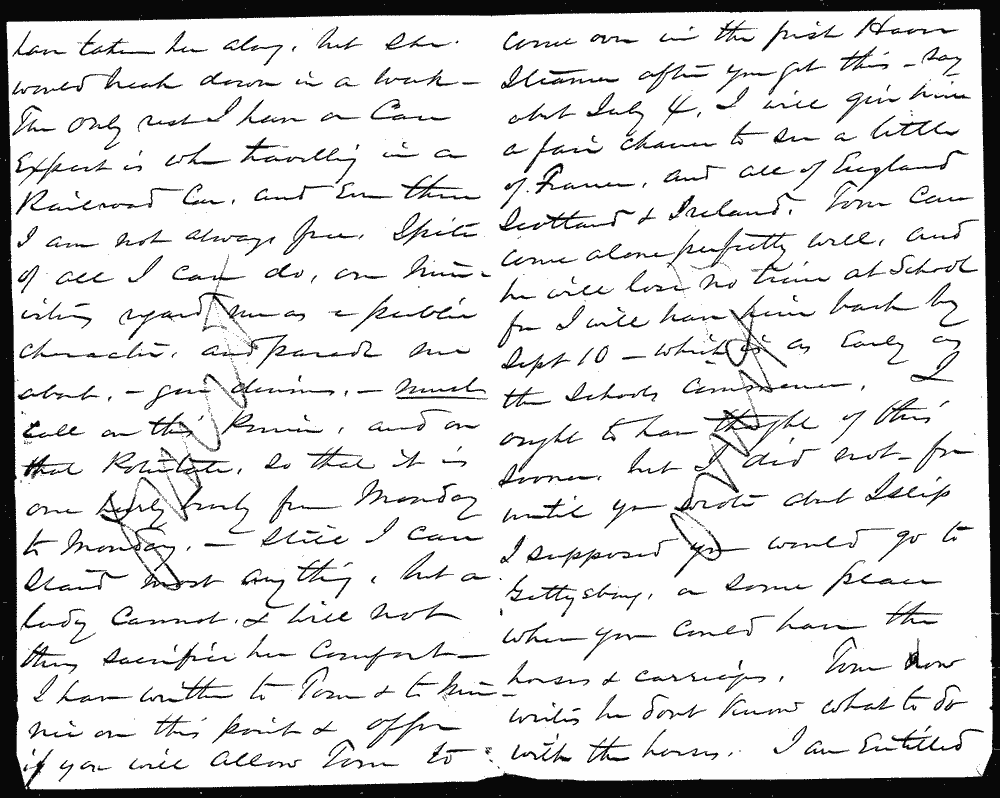 have taken her along, but she
would break down in a week -
The only rest I have or can
Expect is when travelling in a
Railroad Car, and Even then
I am not always free. Spite
of all I can do, our Min-
isters regard me as a public
character, and parade me
about, - give dinners, - must
call on this Prince, and on
that Potentate, so that it is
one hurly burly from Monday
to Monday. - Still I can
stand most anything, but a
lady cannot, & will not
thus sacrifice her comfort -
I have written to Tom & to Min-
nie on this point & offer
if you will allow Tom to
come over in the first Havre
Steamer after you get this - say
abt July 4, I will give him
a fair chance to see a little
of France, and all of England
Scotland & Ireland. Tom can
come alone perfectly well, and
he will lose no time at School
for I will have him back by
Sept 10 - which is as Early as
the Schools commence. I
ought to have thought of this
sooner, but I did not - for
until you wrote abt Islip
I supposed you would go to
Gettysburg, or some place
where you could have the
horses & carriages. Tom now
writes he dont know what to do
with the horses. I am Entitled